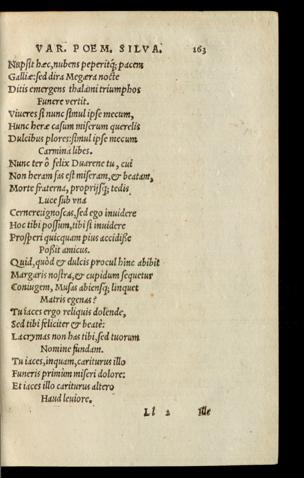 VAR. POEM. SILVA. 263
Nupsit hæc, nubens peperitq; pacem
Galliæ: sed dira Megæra nocte
Ditis emergens thalami triumphos
Funere vertit.
Viueres si nunc simul ipse mecum,
Hunc heræ casum miserum querelis
Dulcibus plores: simul ipse mecum
Carmina libes.
Nunc ter ô felix Duarene tu, cui
Non heram fas est miseram, & beatam,
Morte fraterna, proprijsq; tedis
Luce sub vna
Cernere: ignoscas, sed ego inuidere
Hoc tibi possum, tibi si inuidere
Prosperi quicquam pius accidisse
Possit amicus.
Quid, quòd & dulcis procul hinc abibit
Margaris nostra, & cupidum sequetur
Coniugem, Musas abiensq; linquet
Matris egenas?
Tu iaces ergo reliquis dolende,
Sed tibi feliciter & beatè:
Lacrymas non has tibi, sed tuorum
Nomine fundam.
Tu iaces, inquam, cariturus illo
Funeris primùm miseri dolore:
Et iaces illo cariturus altero
Haud leuiore.
Ll 2 Ille